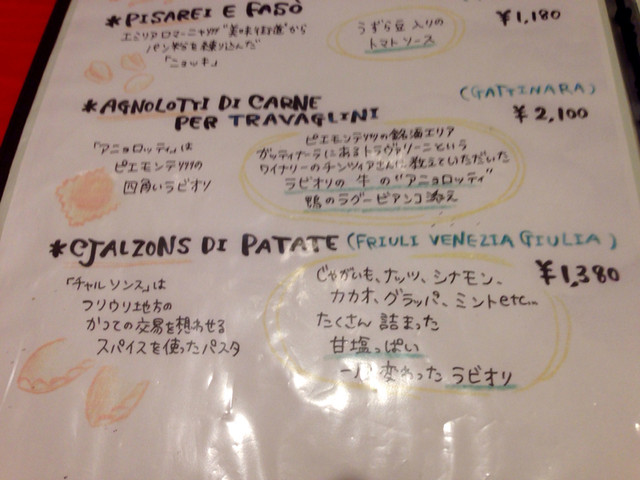 *PISAREI E FASÒ
¥1,180
エミリアロマーニャ州の"美味街道"から
パン粉を練り込んだ
「ニョッキ」
うずら豆入りの
トマトソース
*AGNOLOTTI DI CARNE
PER TRAVAGLINI
(GATTINARA)
¥2,100
「アニョロッティ」は
ピエモンテ州の
四角いラビオリ
ピエモンテ州の銘酒エリア
ガッティナーラにあるトラヴァリーニという
ワイナリーのチンツィアさんに教えていただいた
ラビオリの牛の"アニョロッティ"
鴨のラグービアンコ添え
*CJALZONS DI PATATE (FRIULI VENEZIA GIULIA)
¥1,380
「チャルソンス」は
フリウリ地方の
かつての交易を想わせる
スパイスを使ったパスタ
じゃがいも、ナッツ、シナモン、
カカオ、グラッパ、ミントetc...
たくさん詰まった
甘塩っぱい
一風変わったラビオリ